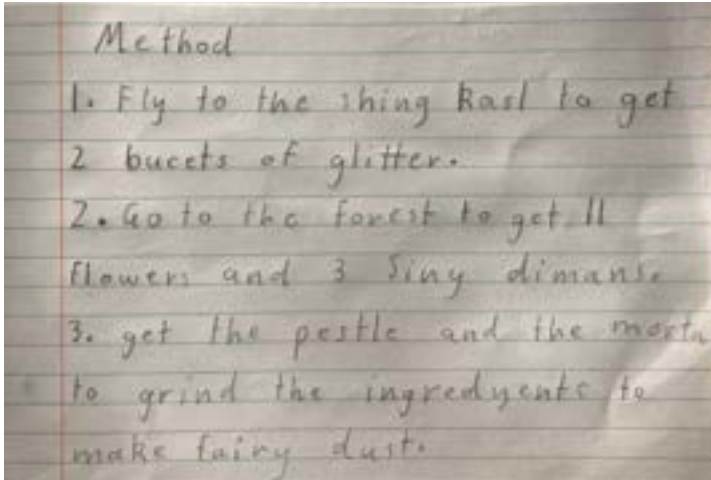 Method
1. Fly to the shing Rasl to get
2 bucets of glitter.
2. Go to the forest to get 11
flowers and 3 Siny dimans.
3. get the pestle and the morta
to grind the ingredyents to
make fairy dust.